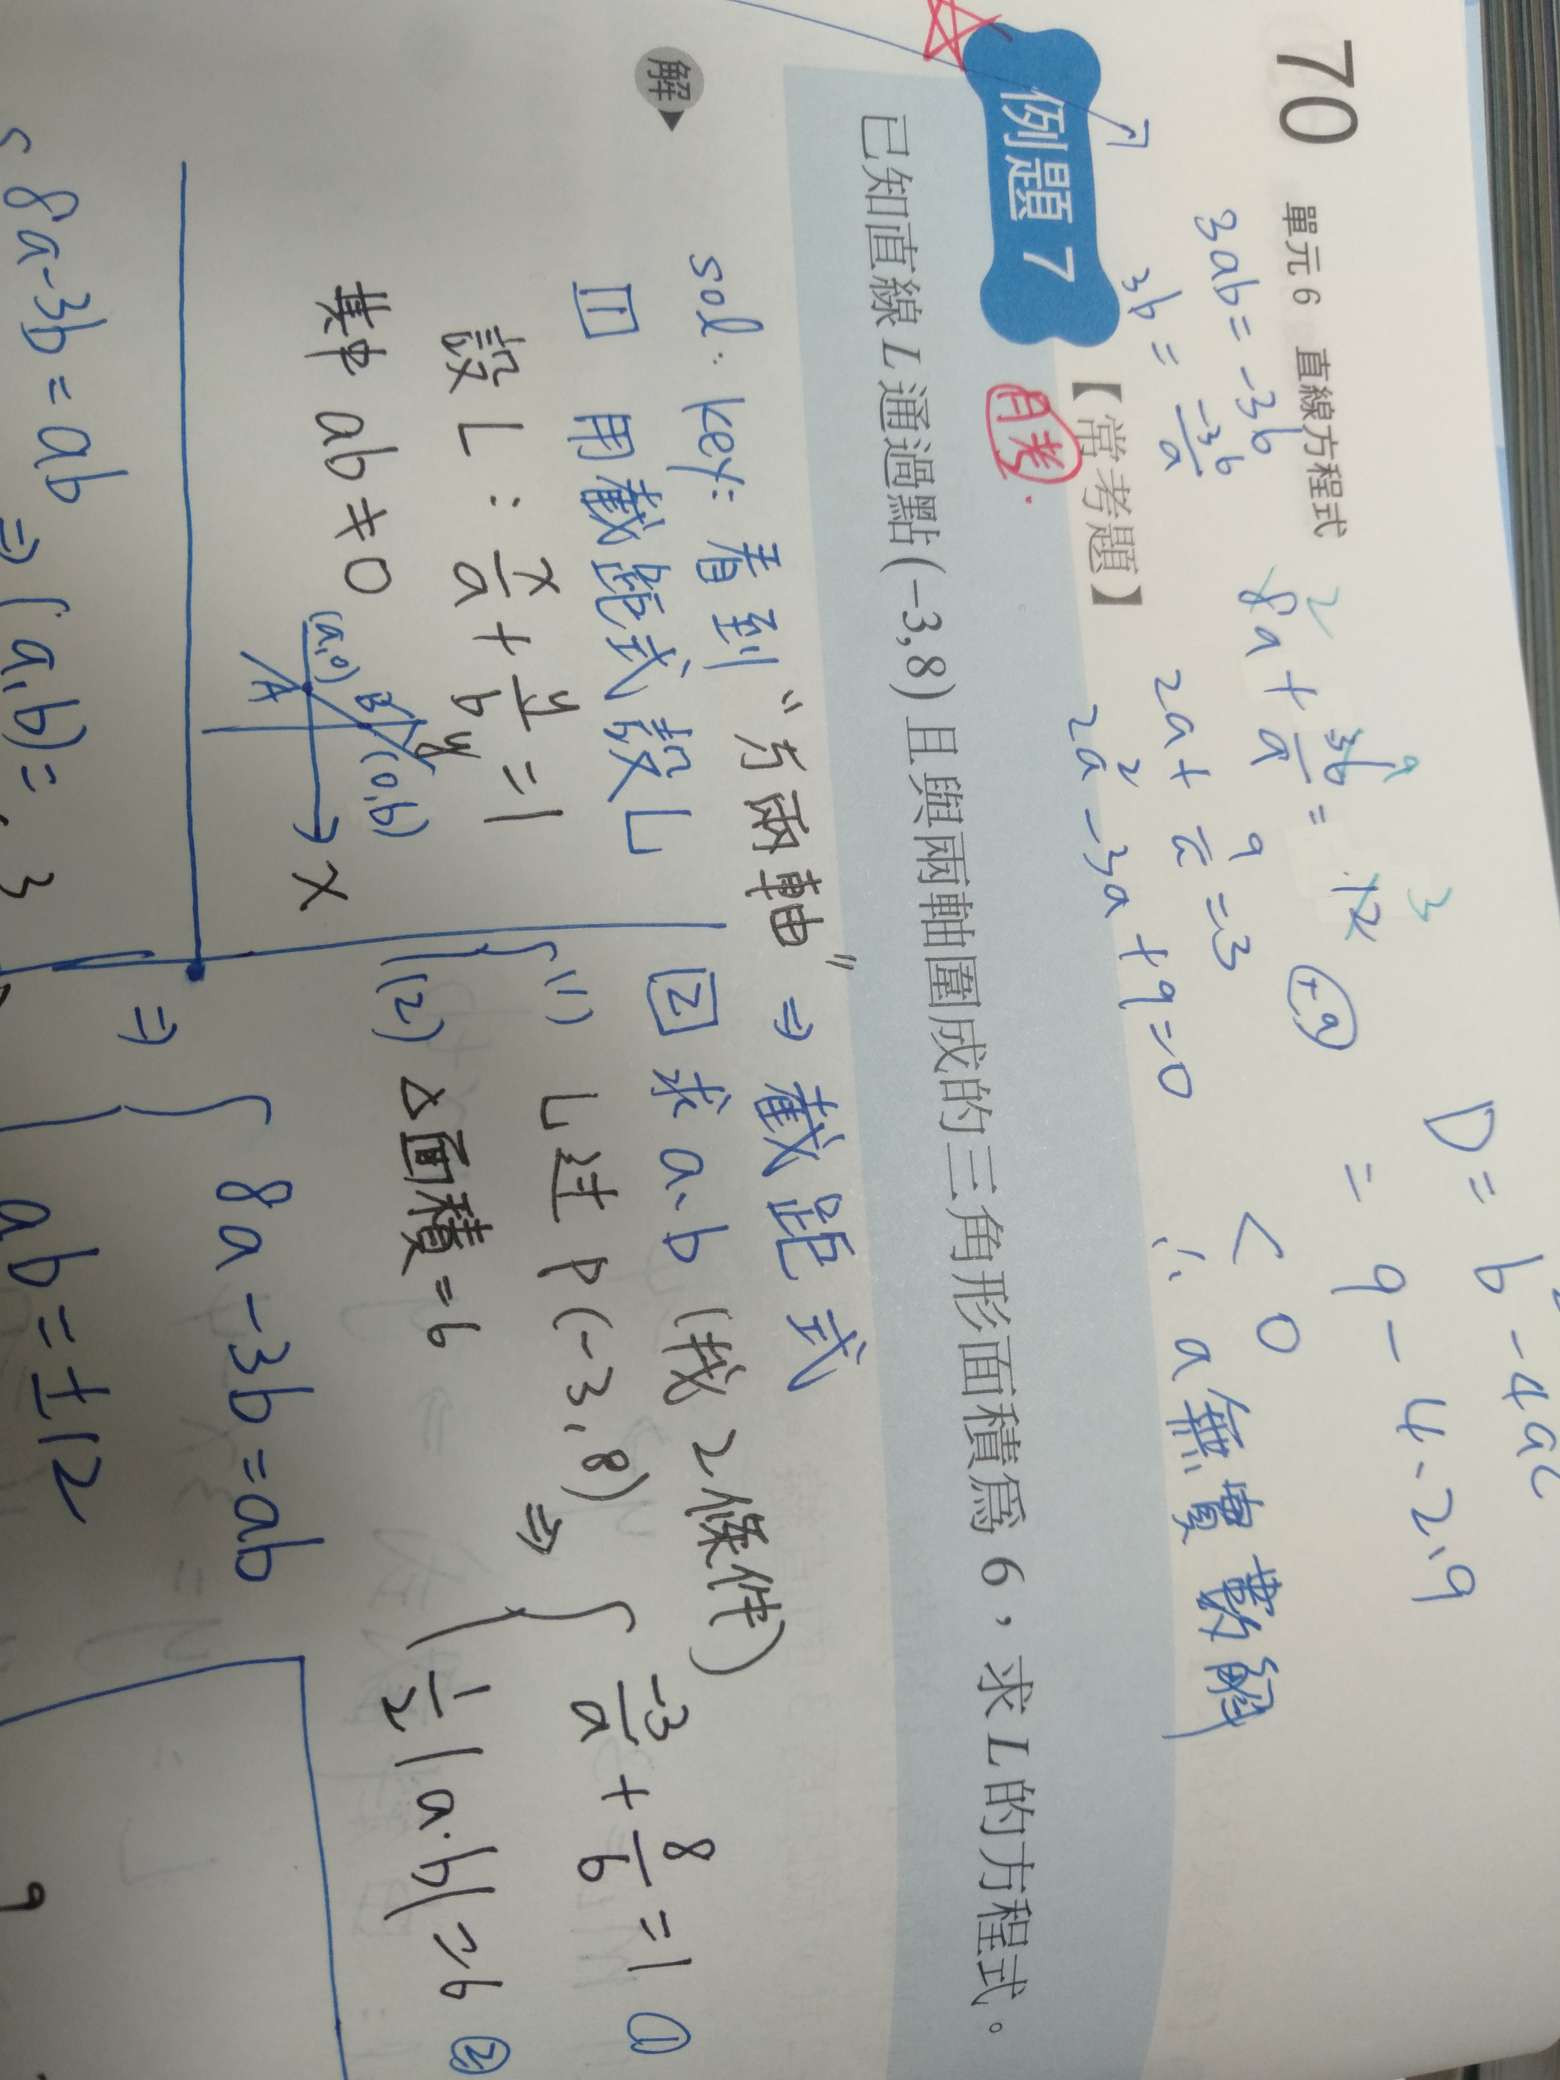 70 單元 6 直線方程式
3ab = -3b
3b = -36/a
8a + 36/a = 12
2a + 9/a = 3
2a² - 3a + 9 = 0
(+a)
D = b² - 4ac
= 9 - 4·2·9
< 0
∴ a無實數解
例題 7 【常考題】
月考.
已知直線 L 通過點(-3,8)且與兩軸圍成的三角形面積為 6，求 L 的方程式。
解
sol: key: 看到 "方兩軸" ⇒ 截距式
1 用截距式設L
設 L : x/a + y/b = 1
其中 ab ≠ 0
(a,0) A B (0,b) y x
2 求 a、b (找2條件)
(1) L 过 P(-3,8)
(2) △面積=6
⇒ { -3/a + 8/b = 1 ①
1/2 |a·b| = 6 ②
⇒ { 8a - 3b = ab
ab = ±12
8a-3b = ab ⇒ (a,b) =